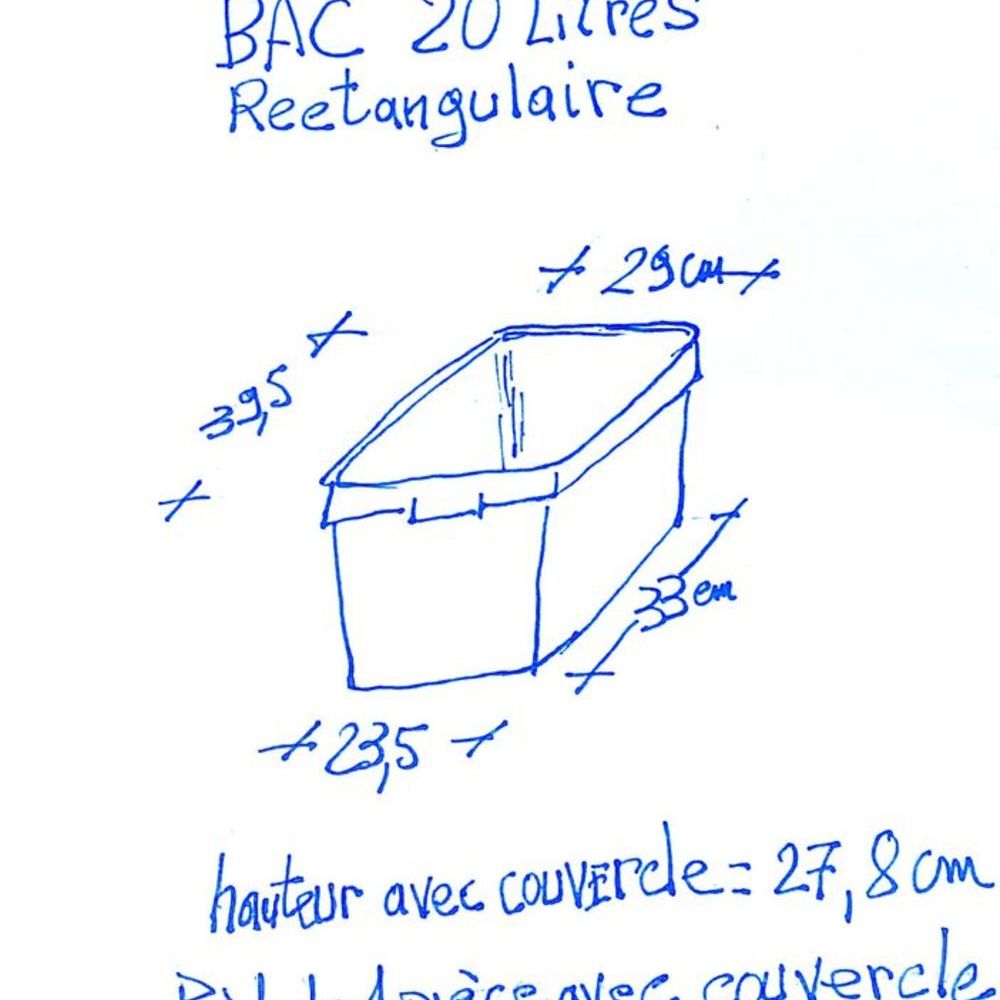 BAC 20 Litres
Reetangulaire
29cm
39,5
33cm
23,5
hauteur avec couvercle = 27,8 cm
avec couvercle